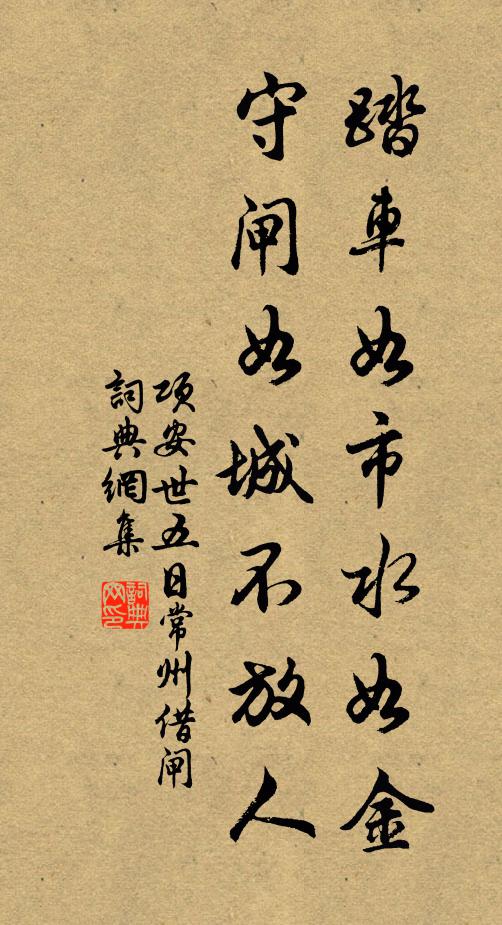 踏車如市水如金
守闸如城不放人
项安世五日常州借闸
詞典網集
詞典
网印